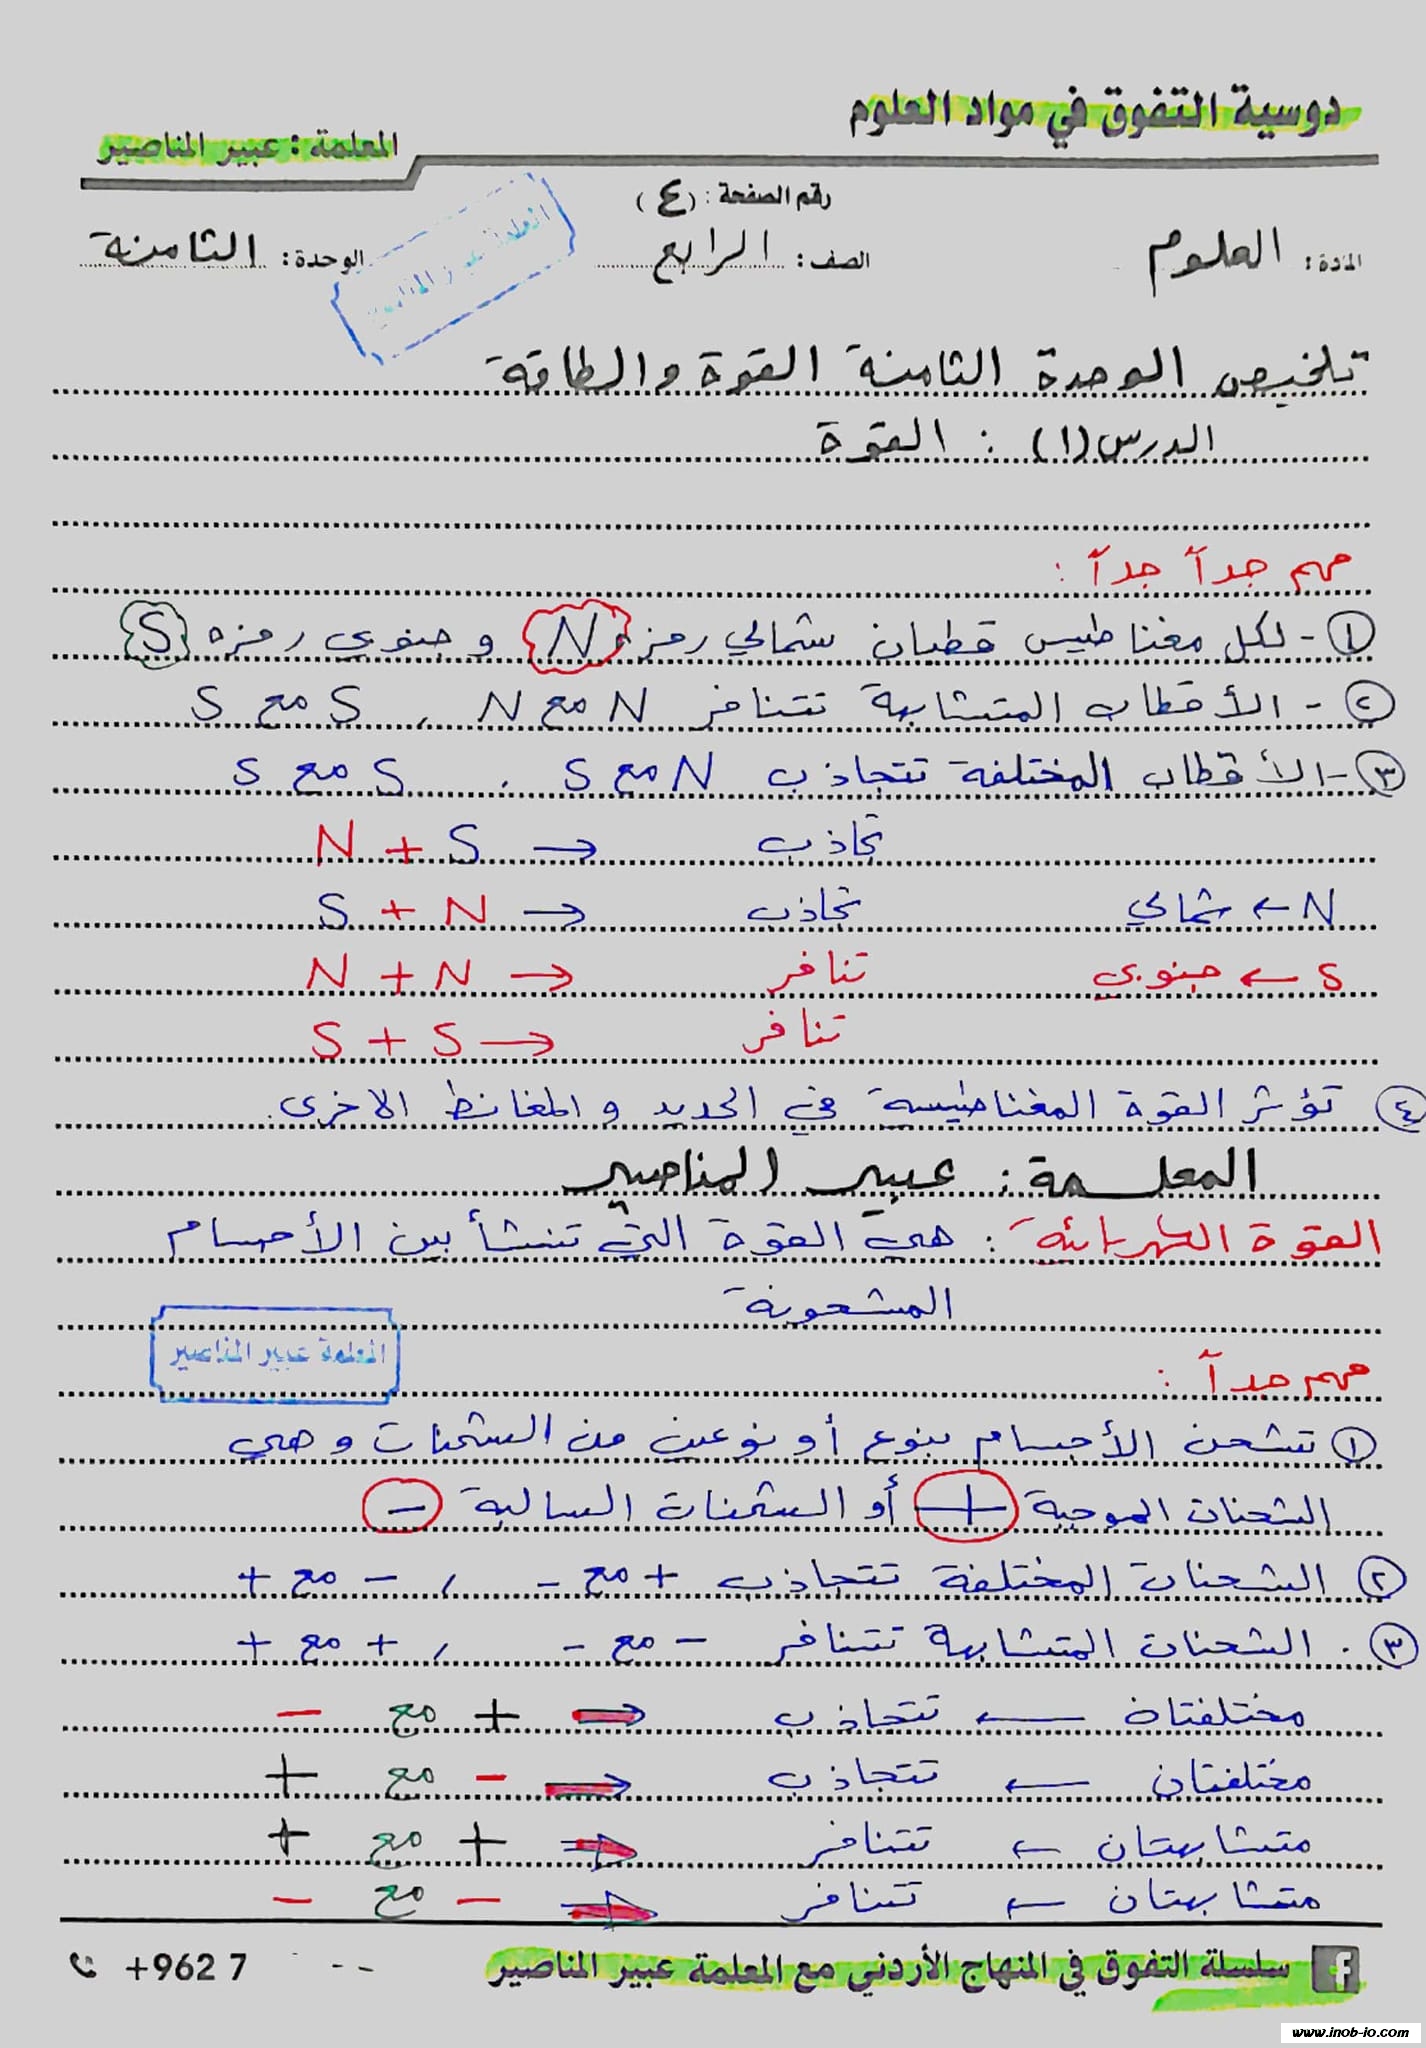 دوسية التفوق في مواد العلوم
المعلمة : عبير المناصير
رقم الصفحة : (٤)
المادة : العلوم الصف : الرابع الوحدة : الثامنة
المعلمة عبير المناصير
تلخيص الوحدة الثامنة القوة والطاقة
الدرس (١) : القوة
مهم جداً جداً :
١- لكل مغناطيس قطبان شمالي رمزه N و جنوبي رمزه S
٢- الأقطاب المتشابهة تتنافر N مع N , S مع S
٣- الأقطاب المختلفة تتجاذب N مع S , S مع S
تجاذب ← N + S
N ← شمالي تجاذب ← S + N
S ← جنوبي تنافر ← N + N
تنافر ← S + S
٤ تؤثر القوة المغناطيسية في الحديد والمغانط الاخرى.
المعلمة : عبير المناصير
القوة الكهربائية : هي القوة التي تنشأ بين الأجسام
المشحونة
المعلمة عبير المناصير
مهم جداً :
١ تشحن الأجسام بنوع أو نوعين من الشحنات وهي
الشحنات الموجبة + أو الشحنات السالبة -
٢ الشحنات المختلفة تتجاذب + مع - , - مع +
٣. الشحنات المتشابهة تتنافر - مع - , + مع +
مختلفتان ← تتجاذب ⇒ + مع -
مختلفتان ← تتجاذب ⇒ - مع +
متشابهتان ← تتنافر ⇒ + مع +
متشابهتان ← تتنافر ⇒ - مع -
سلسلة التفوق في المنهاج الأردني مع المعلمة عبير المناصير
+962 7
www.inob-io.com